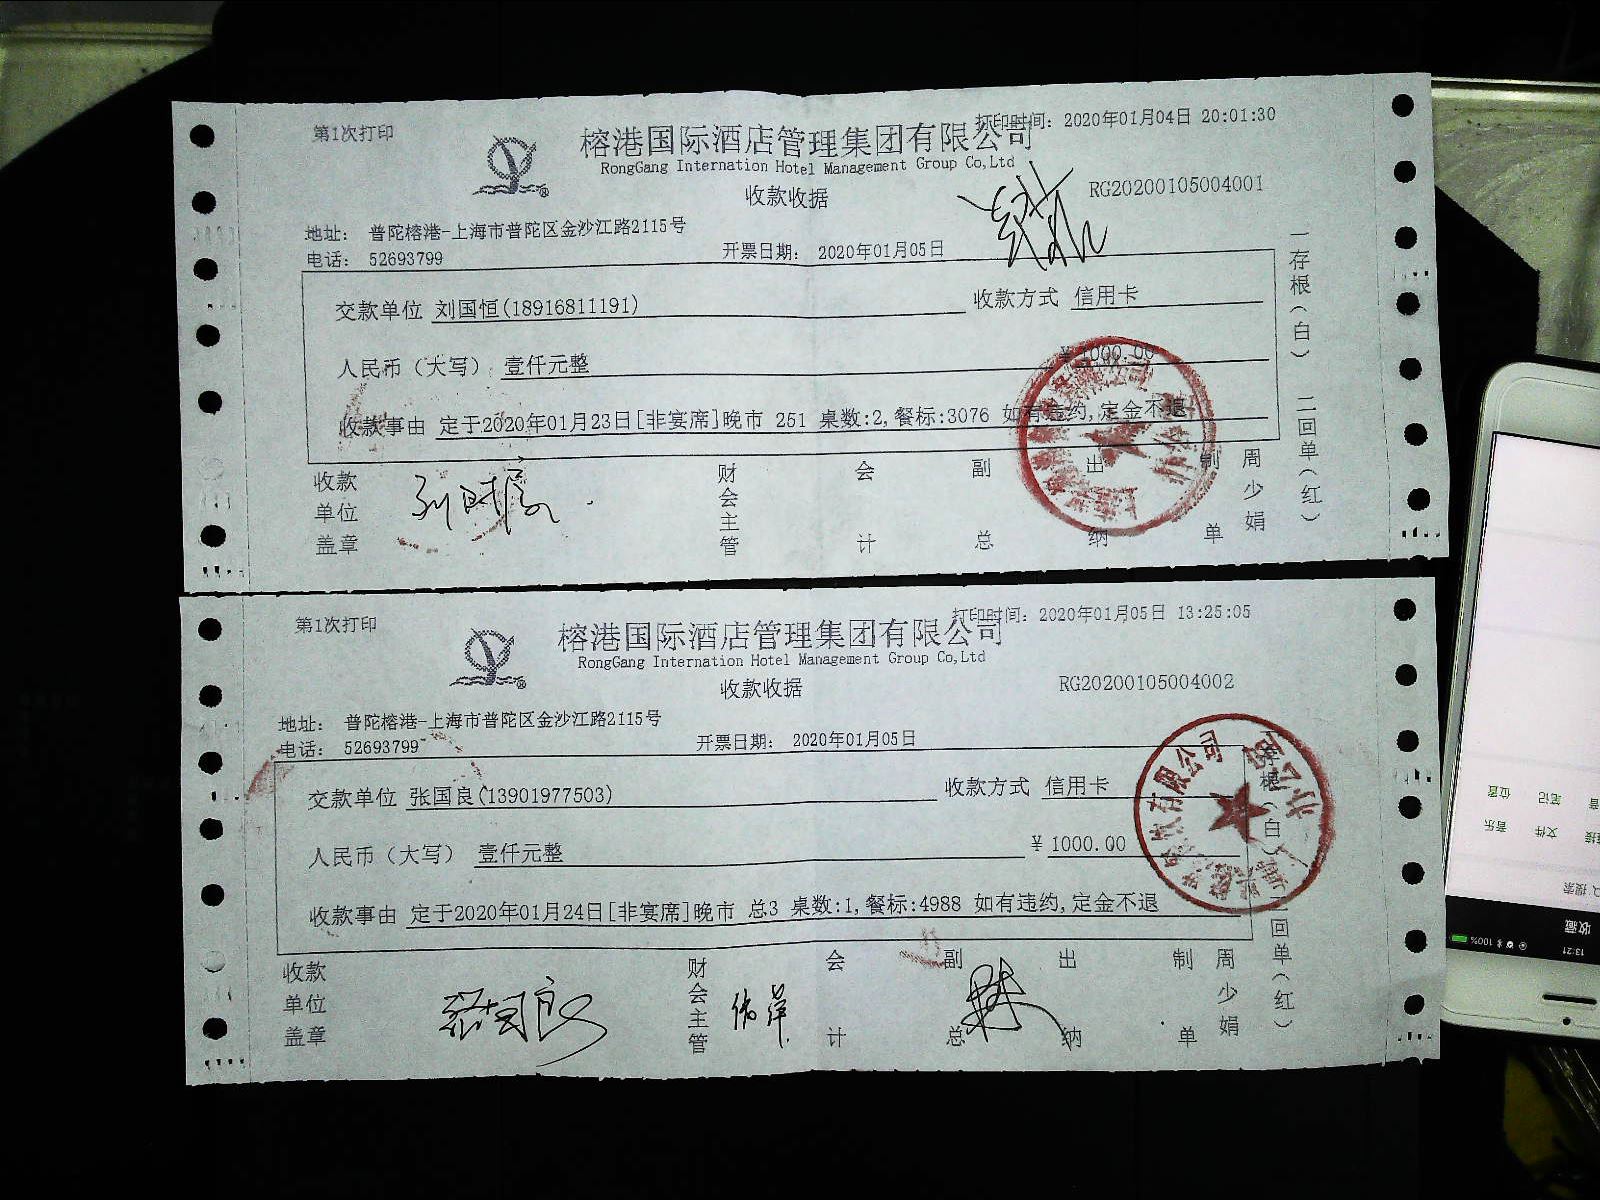 第1次打印
打印时间: 2020年01月04日 20:01:30
榕港国际酒店管理集团有限公司
RongGang Internation Hotel Management Group Co,Ltd
收款收据
RG20200105004001
地址: 普陀榕港-上海市普陀区金沙江路2115号
电话: 52693799
开票日期: 2020年01月05日
交款单位 刘国恒(18916811191)
收款方式 信用卡
人民币(大写) 壹仟元整
¥ 1000.00
收款事由 定于2020年01月23日[非宴席]晚市 251 桌数:2,餐标:3076 如有违约,定金不退
一存根(白) 二回单(红)
收款单位盖章
财会主管
会计
副总
出纳
制单
周少娟
第1次打印
打印时间: 2020年01月05日 13:25:05
榕港国际酒店管理集团有限公司
RongGang Internation Hotel Management Group Co,Ltd
收款收据
RG20200105004002
地址: 普陀榕港-上海市普陀区金沙江路2115号
电话: 52693799
开票日期: 2020年01月05日
交款单位 张国良(13901977503)
收款方式 信用卡
人民币(大写) 壹仟元整
¥ 1000.00
收款事由 定于2020年01月24日[非宴席]晚市 总3 桌数:1,餐标:4988 如有违约,定金不退
存根(白) 二回单(红)
收款单位盖章
张国良
财会主管
会计
副总
出纳
制单
周少娟
有限公司
13:21
100%
收藏
搜索
音乐
文件
笔记
位置